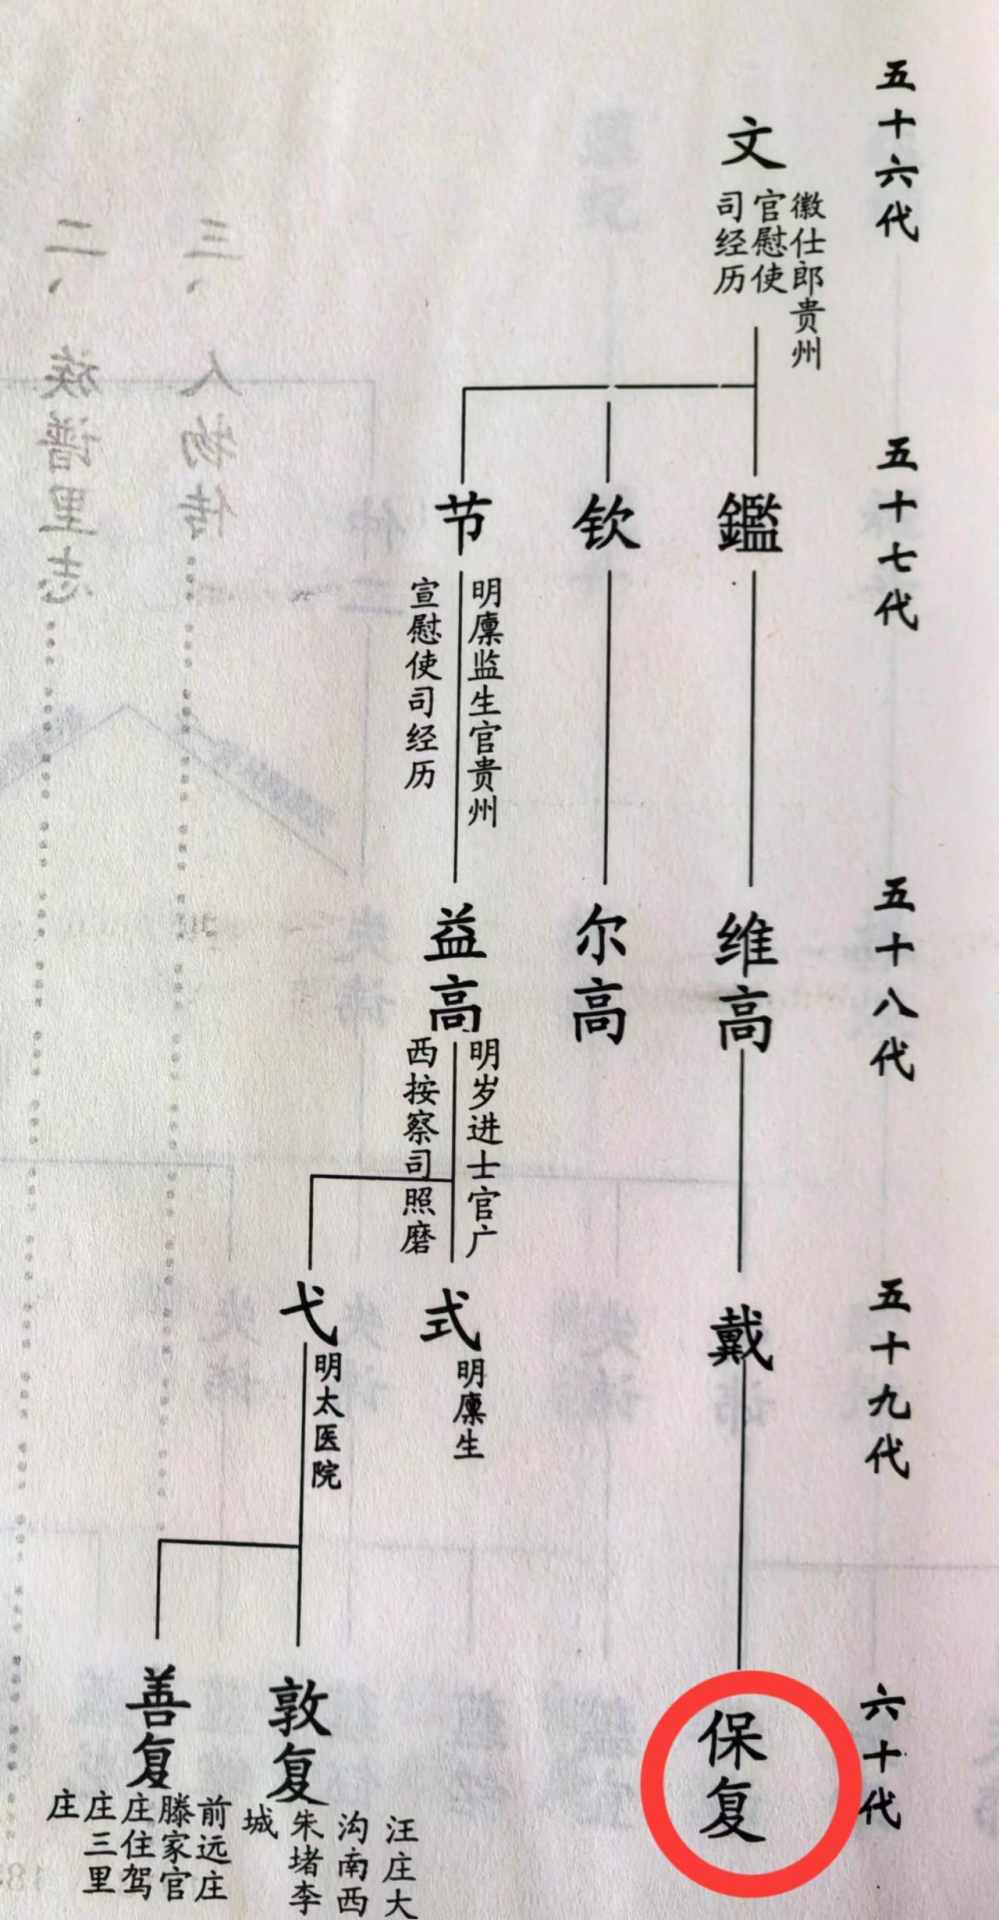 五十六代
文
徽仕郎贵州
官慰使
司经历
五十七代
鑑
钦
节
明廪监生官贵州
宣慰使司经历
五十八代
维高
尔高
益高
明岁进士官广
西按察司照磨
五十九代
戴
式
明廪生
弋
明太医院
六十代
保复
敦复
汪庄大
沟南西
朱堵李
城
善复
前远庄
滕家官
庄住驾
庄三里
庄
三、人物传
二、族谱里志